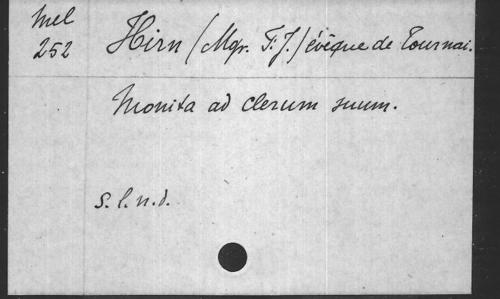 Mel
252
Hirn /Mgr. F. J./ évêque de Tournai.
Monita ad clerum suum.
s. l. n. d.